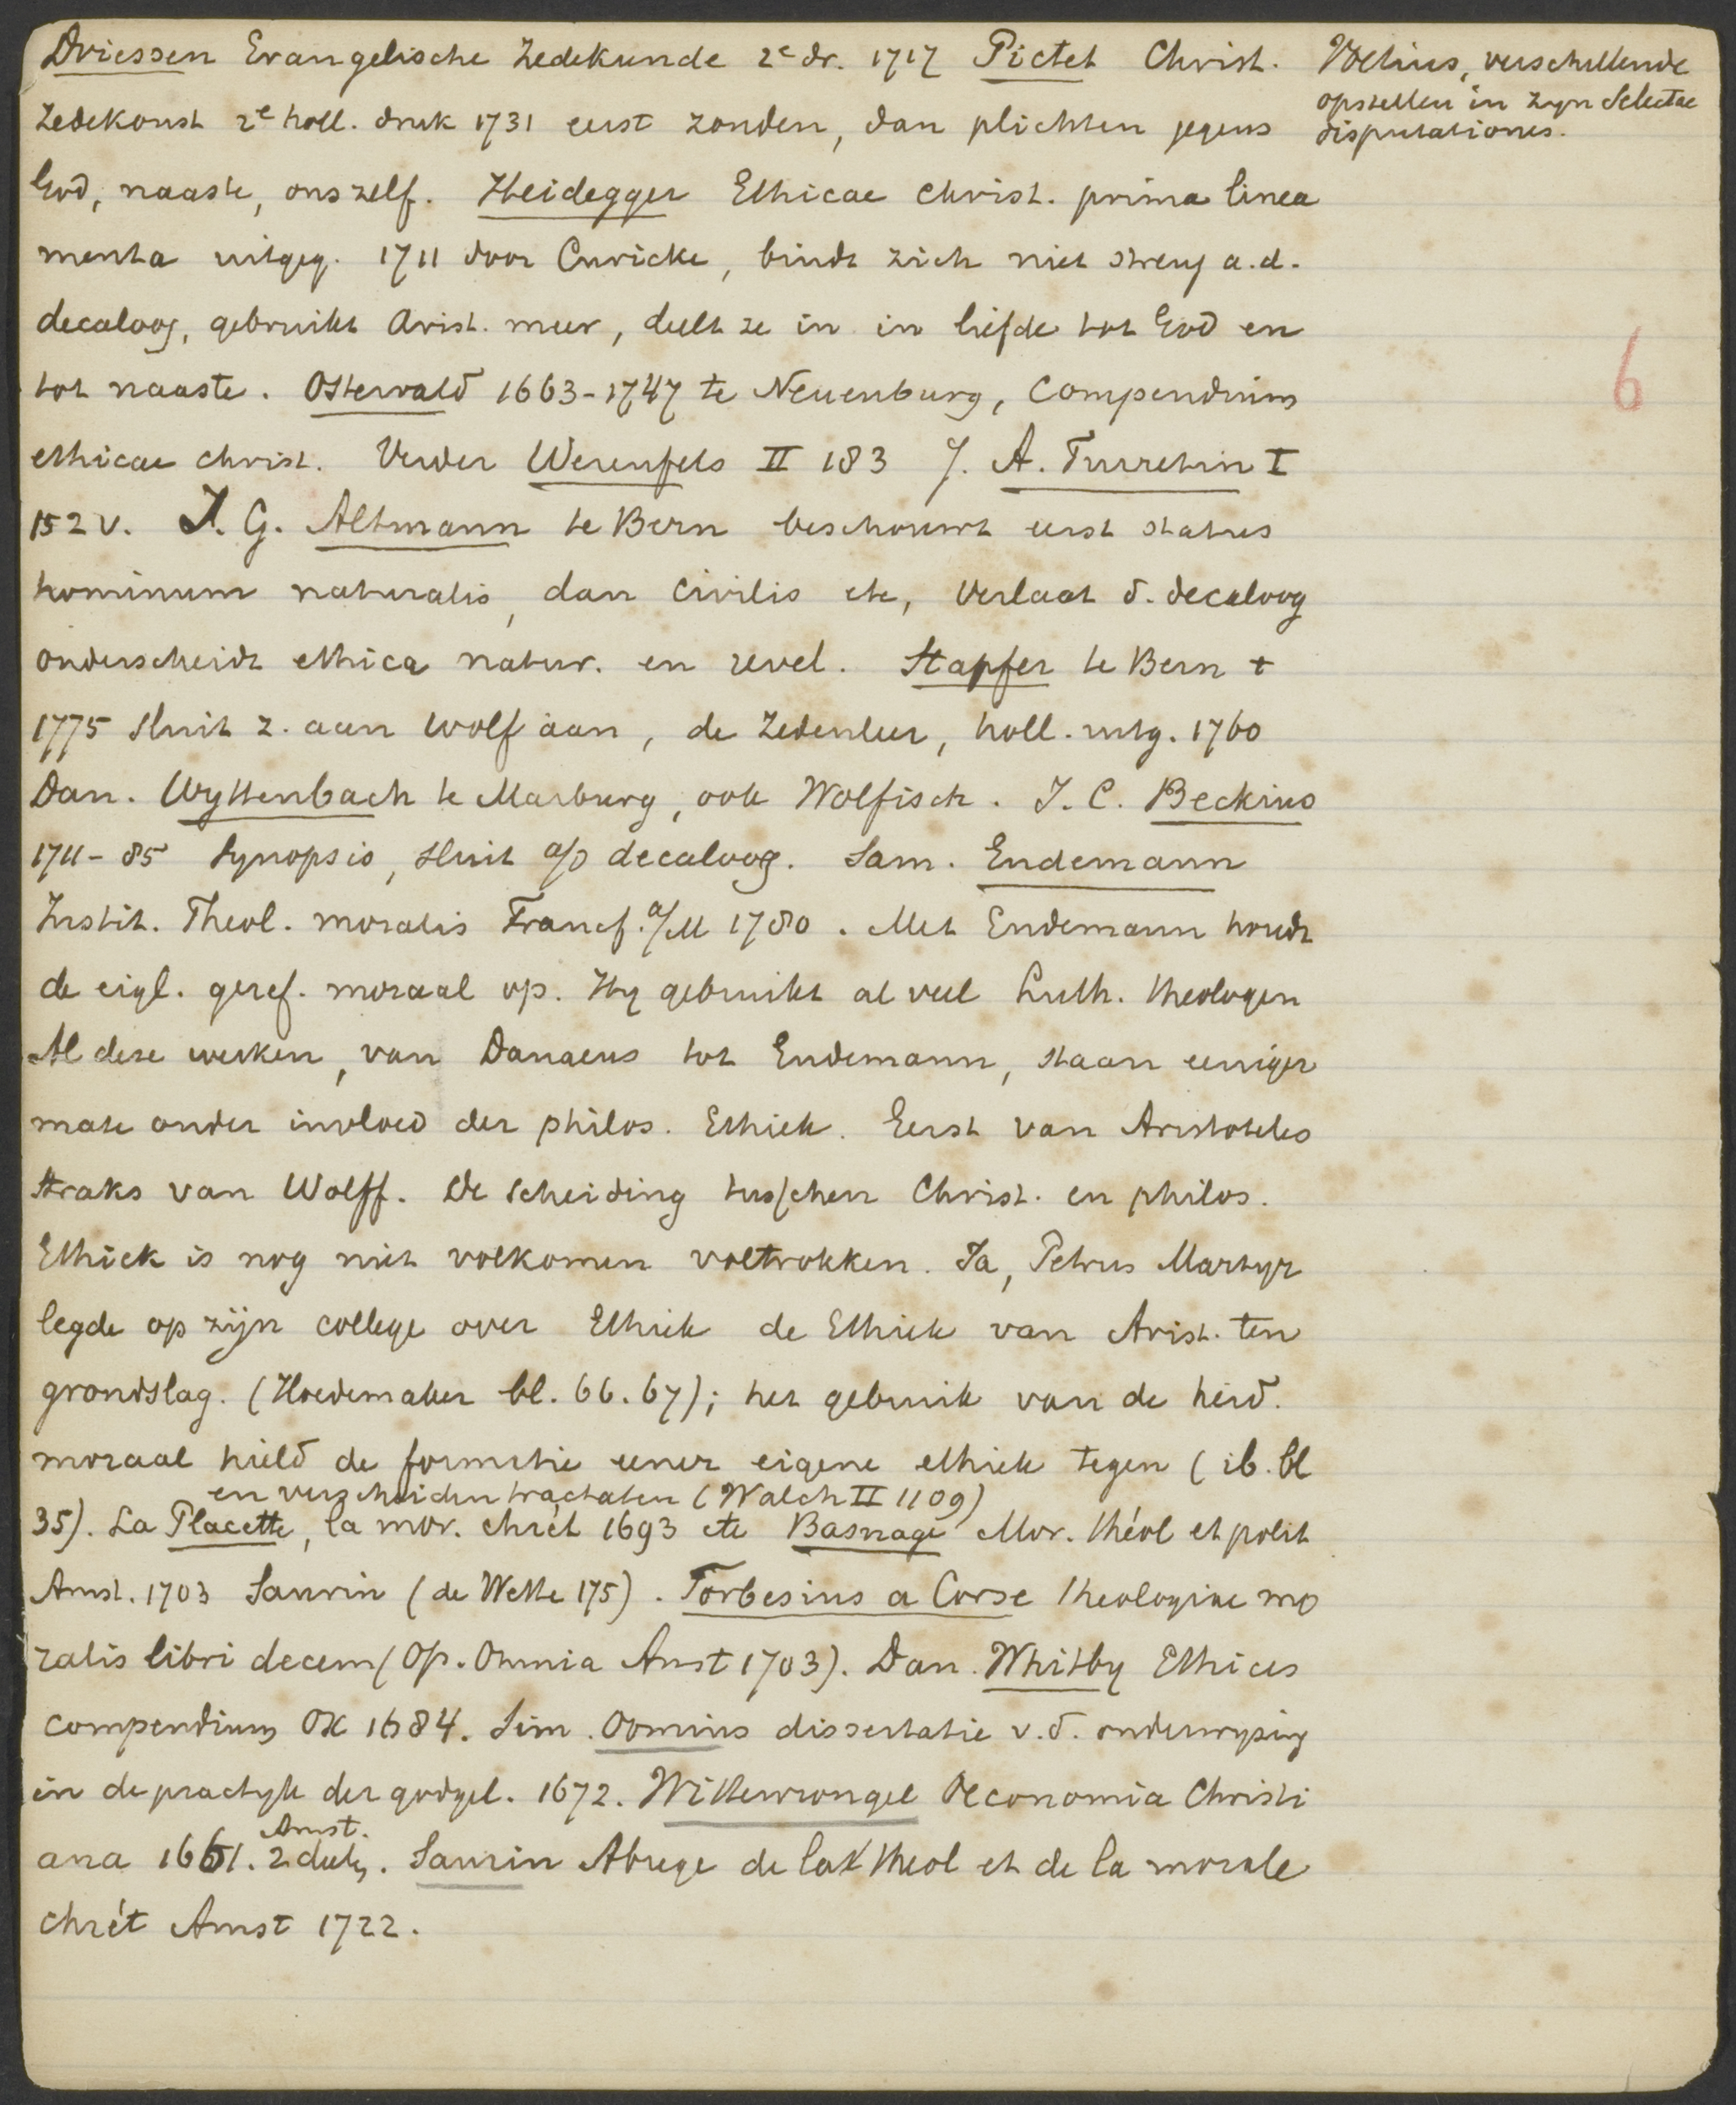 Driessen Evangelische Zedekunde 2e dr. 1717 Pictet Christ.
Zedekonst 2e holl. druk 1731 eerst zonden, dan plichten jegens
God, naaste, ons zelf. Heidegger Ethicae christ. prima linea
menta uitgeg. 1711 door Curicke, bindt zich niet streng a.d.
decaloog, gebruikt Arist. meer, deelt ze in in liefde tot God en
tot naaste. Osterwald 1663-1747 te Neuenburg, Compendium
ethicae christ. Verder Werenfels II 183 J. A. Turretin I
152 v. J. G. Altmann te Bern beschouwt eerst status
hominum naturalis, dan civilis etc, verlaat d. decaloog
onderscheidt ethica natur. en revel. Stapfer te Bern +
1775 sluit z. aan Wolf aan, de Zedenleer, holl. uitg. 1760
Dan. Wyttenbach te Marburg, ook Wolfisch. J. C. Beckius
1711-85 Synopsis, sluit a/d decaloog. Sam. Endemann
Instit. Theol. moralis Francf. a/M 1780. Met Endemann houdt
de eigl. geref. moraal op. Hy gebruikt al veel Luth. theologen
Al deze werken, van Danaeus tot Endemann, staan eeniger
mate onder invloed der philos. Ethiek. Eerst van Aristoteles
straks van Wolff. De scheiding tusschen Christ. en philos.
Ethiek is nog niet volkomen voltrokken. Ja, Petrus Martyr
legde op zijn college over Ethiek de Ethiek van Arist. ten
grondslag. (Hoedemaker bl. 66. 67); het gebruik van de heid.
moraal hield de formatie eener eigene ethiek tegen (ib. bl
en verscheiden tractaten (Walch II 1109)
35). La Placette, la mor. chrét 1693 etc Basnage Mor. théol et polit
Amst. 1703 Saurin (de Wette 175). Forbesius a Corse theologiae mo
ralis libri decem (Op. Omnia Amst 1703). Dan. Whitby Ethices
compendium Ox 1684. Sim. Oomius dissertatie v.d. onderwyzing
in de practyk der godgel. 1672. Wittewrongel Oeconomia Christi
Amst.
ana 1661. 2 deeln. Saurin Abrege de la theol et de la morale
chrét Amst 1722.
Voetius, verschillende
opstellen in zyn Selectae
disputationes.
6